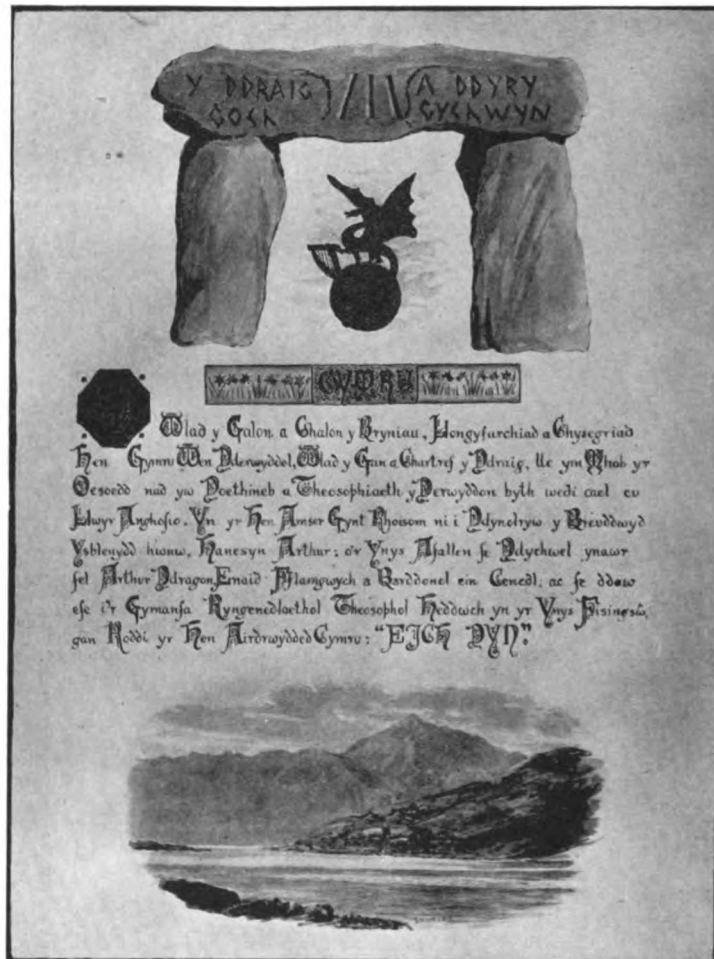 Y DDRAIG /|\ A DDYRY
GOCH GYCHWYN
CYMRU
Wlad y Galon a Chalon y Bryniau, Llongyfarchiad a Chysegriad
Hen Gymru Wen Dderwyddol, Wlad y Gan a Chartref y Ddraig, lle ym Mhob yr
Oesoedd nad yw Doethineb a Theosophiaeth y Derwyddon byth wedi cael eu
Llwyr Anghofio. Yn yr Hen Amser Gynt Rhoisom ni i Ddynolryw y Breuddwyd
Ysblenydd hwnw, Hanesyn Arthur; o'r Ynys Afallen fe Ddychwel ynawr
fel Arthur Ddragon, Enaid Fflamgwych a Barddonol ein Cenedl, ac fe ddaw
efe i'r Gymanfa Ryngenedlaethol Theosophol Heddwch yn yr Ynys Fisingsö,
gan Roddi yr Hen Airdrwydded Cymru: "EICH DYN."